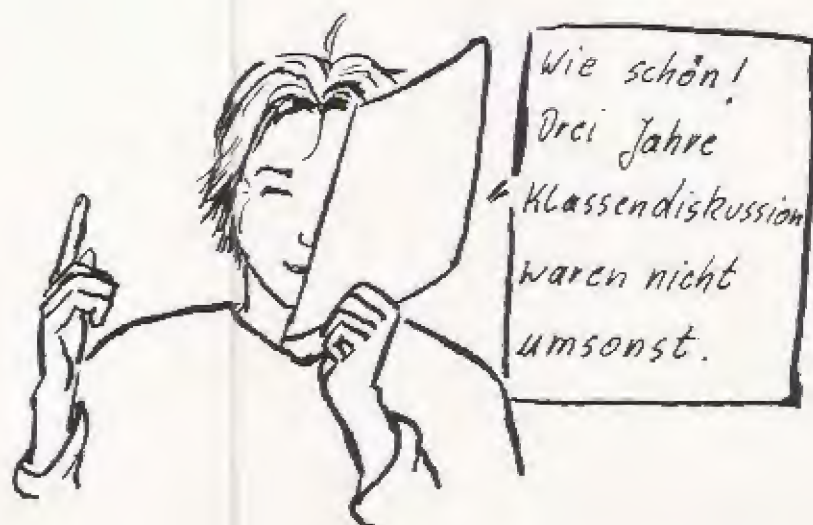 Wie schön!
Drei Jahre
Klassendiskussion
waren nicht
umsonst.